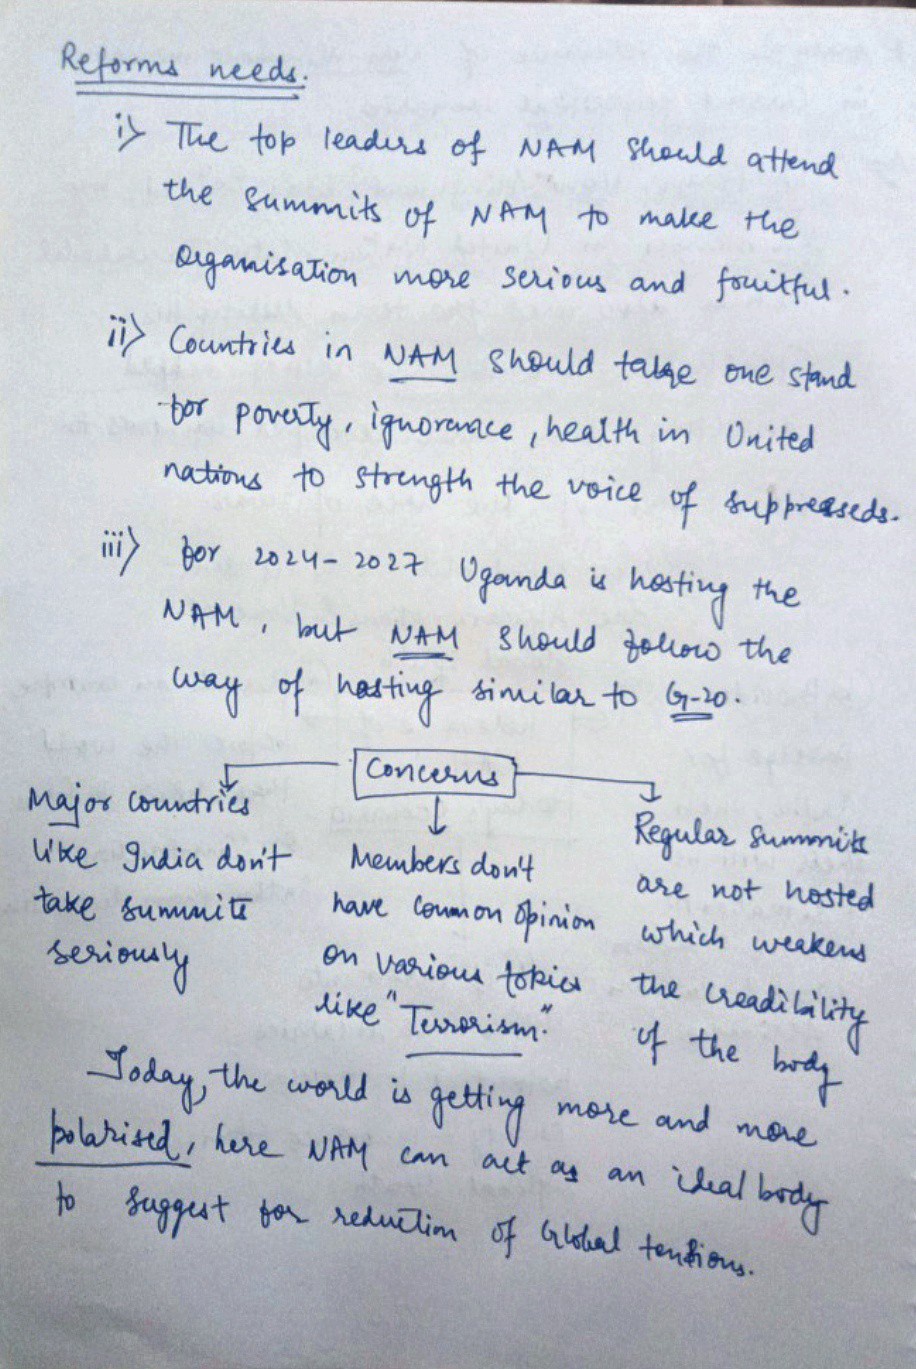 Reforms needs.
i) The top leaders of NAM should attend
the summits of NAM to make the
organisation more serious and fruitful.
ii) Countries in NAM should take one stand
for poverty, ignorence, health in United
nations to strength the voice of suppresseds.
iii) for 2024-2027 Uganda is hosting the
NAM, but NAM should follow the
way of hosting similar to G-20.
Concerns
Major countries
like India don't
take summits
seriously
Members don't
have common opinion
on various topics
like "Terrorism".
Regular summits
are not hosted
which weakens
the creadibility
of the body
Today, the world is getting more and more
polarised, here NAM can act as an ideal body
to suggest for reduction of Global tensions.